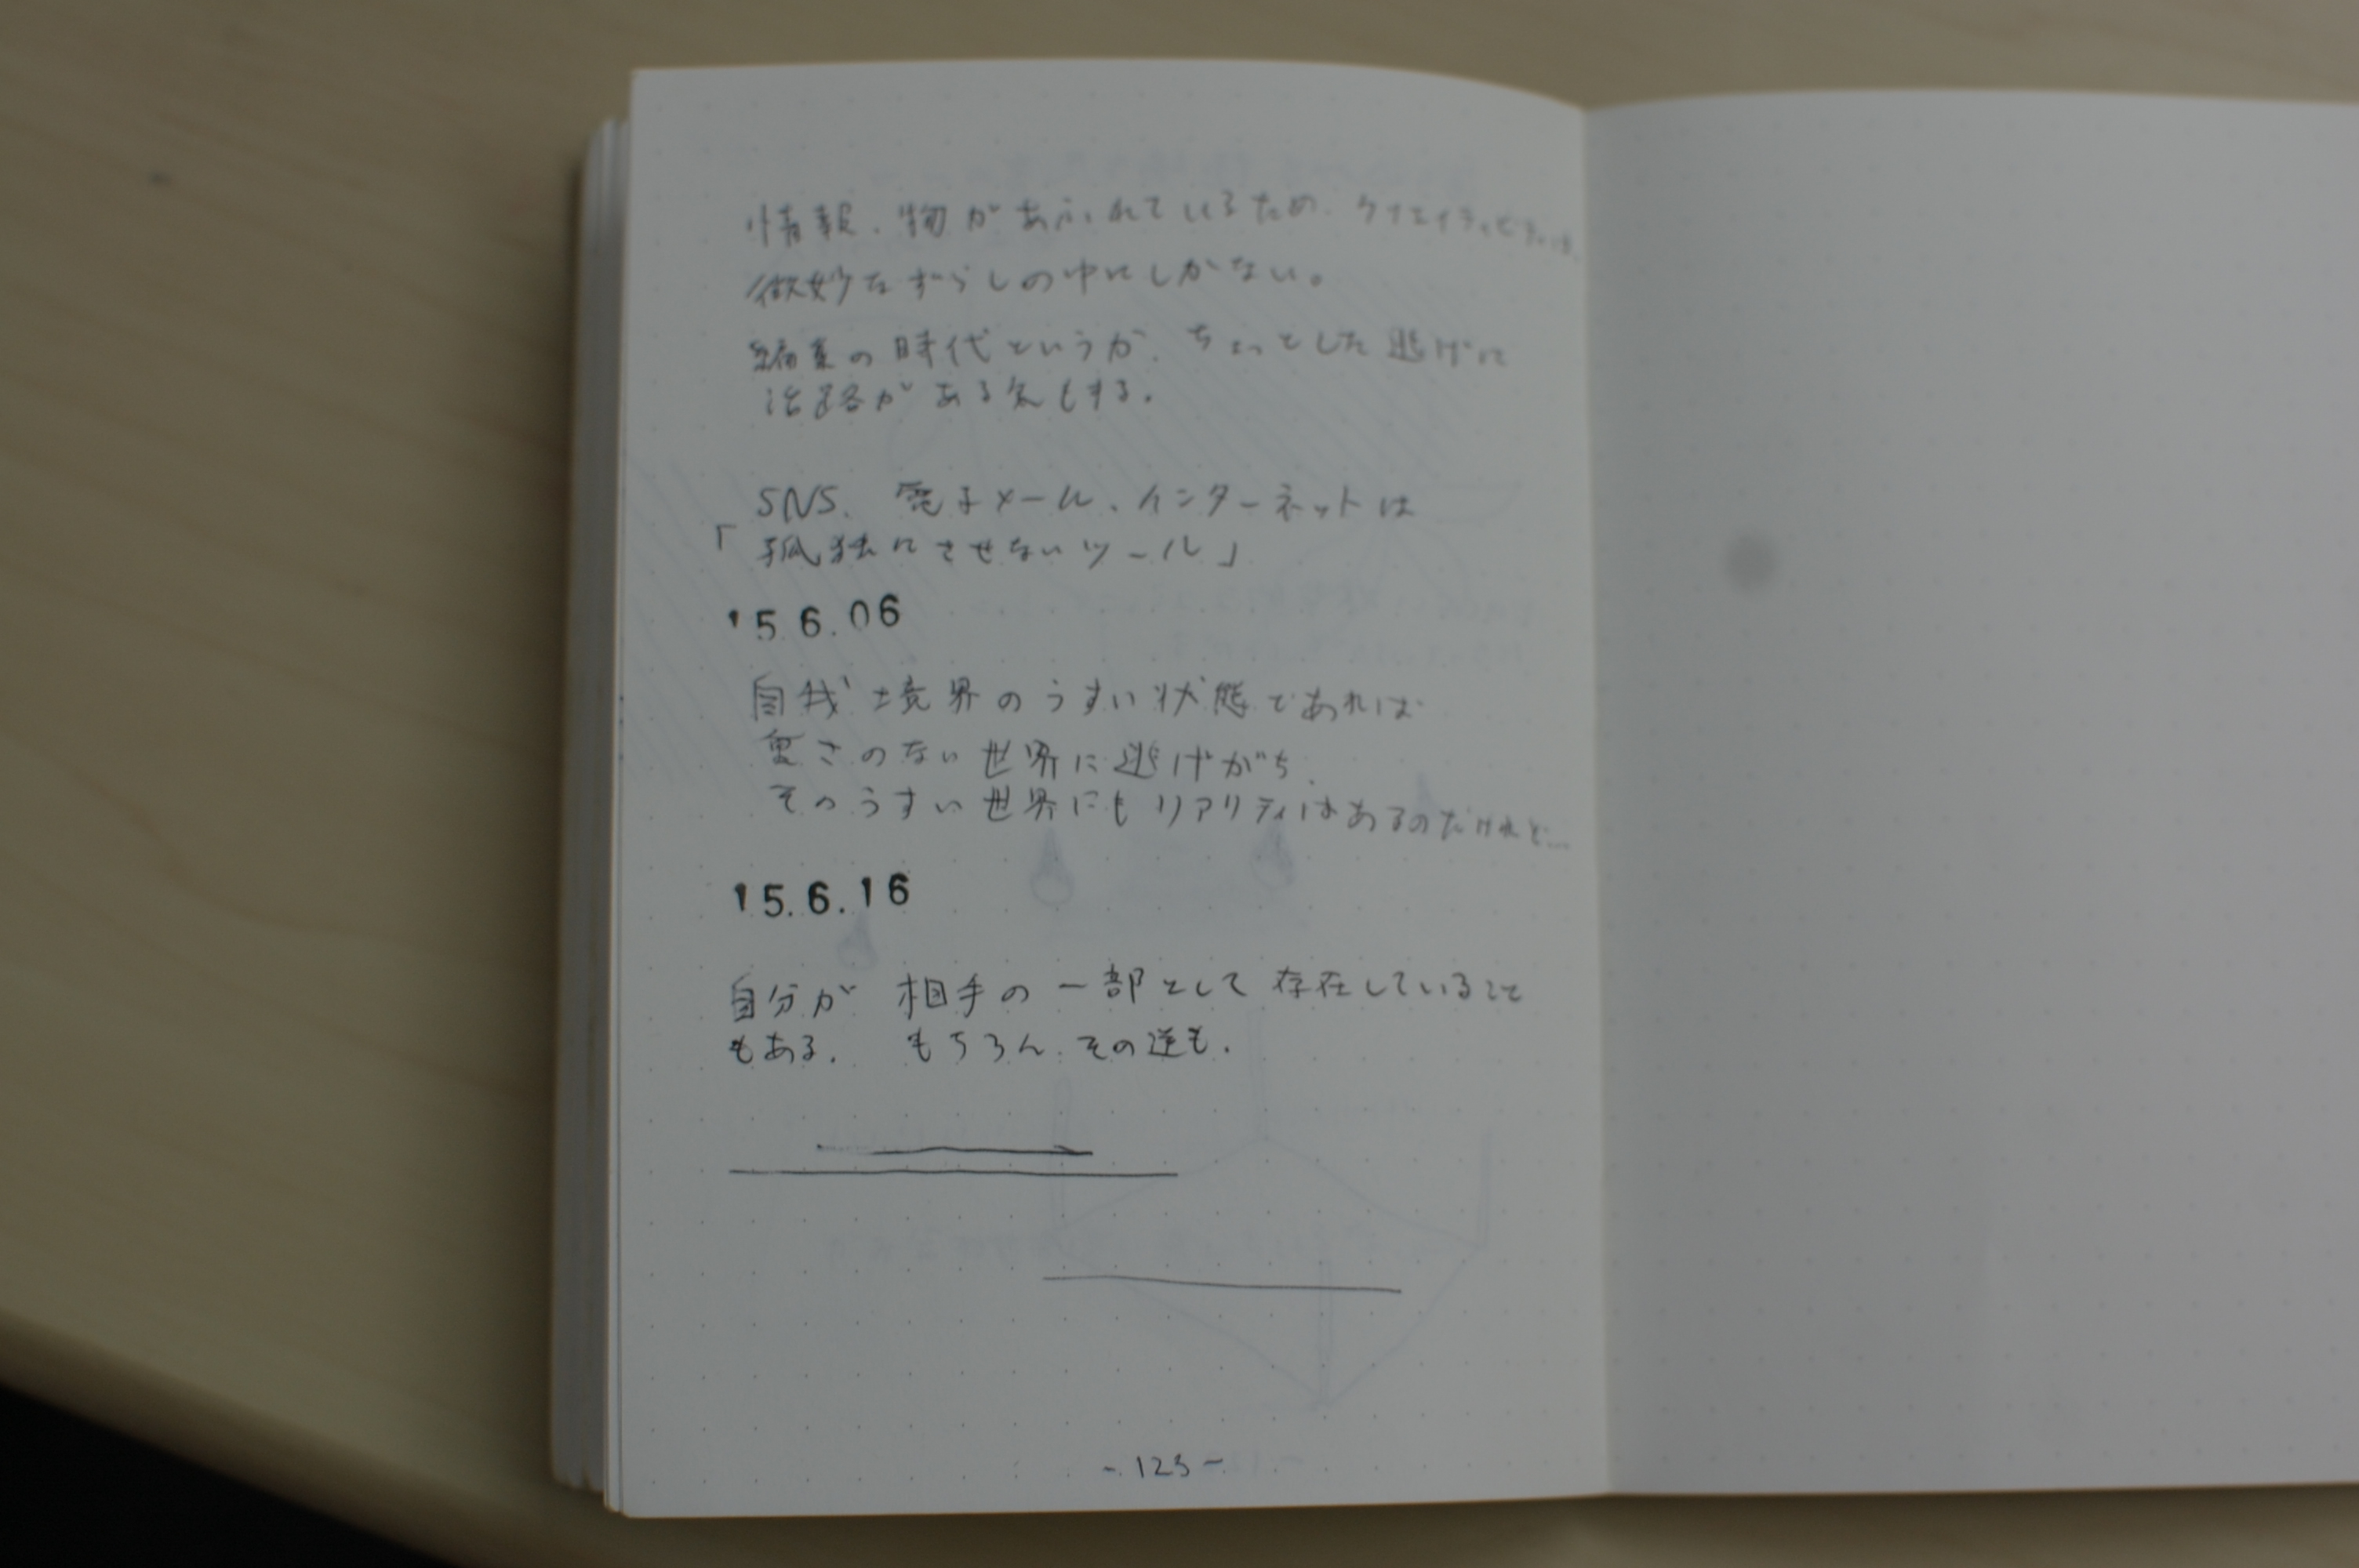 情報、物があふれているため、クリエイティビティは、
微妙なずらしの中にしかない。
編集の時代というか、ちょっとした逃げに
活路がある気もする。
SNS、電子メール、インターネットは
「孤独にさせないツール」
'15.6.06
自我境界のうすい状態であれば
重さのない世界に逃げがち。
そのうすい世界にもリアリティはあるのだけれど…
'15.6.16
自分が 相手の一部として存在していること
もある。 もちろん、その逆も。
-123-